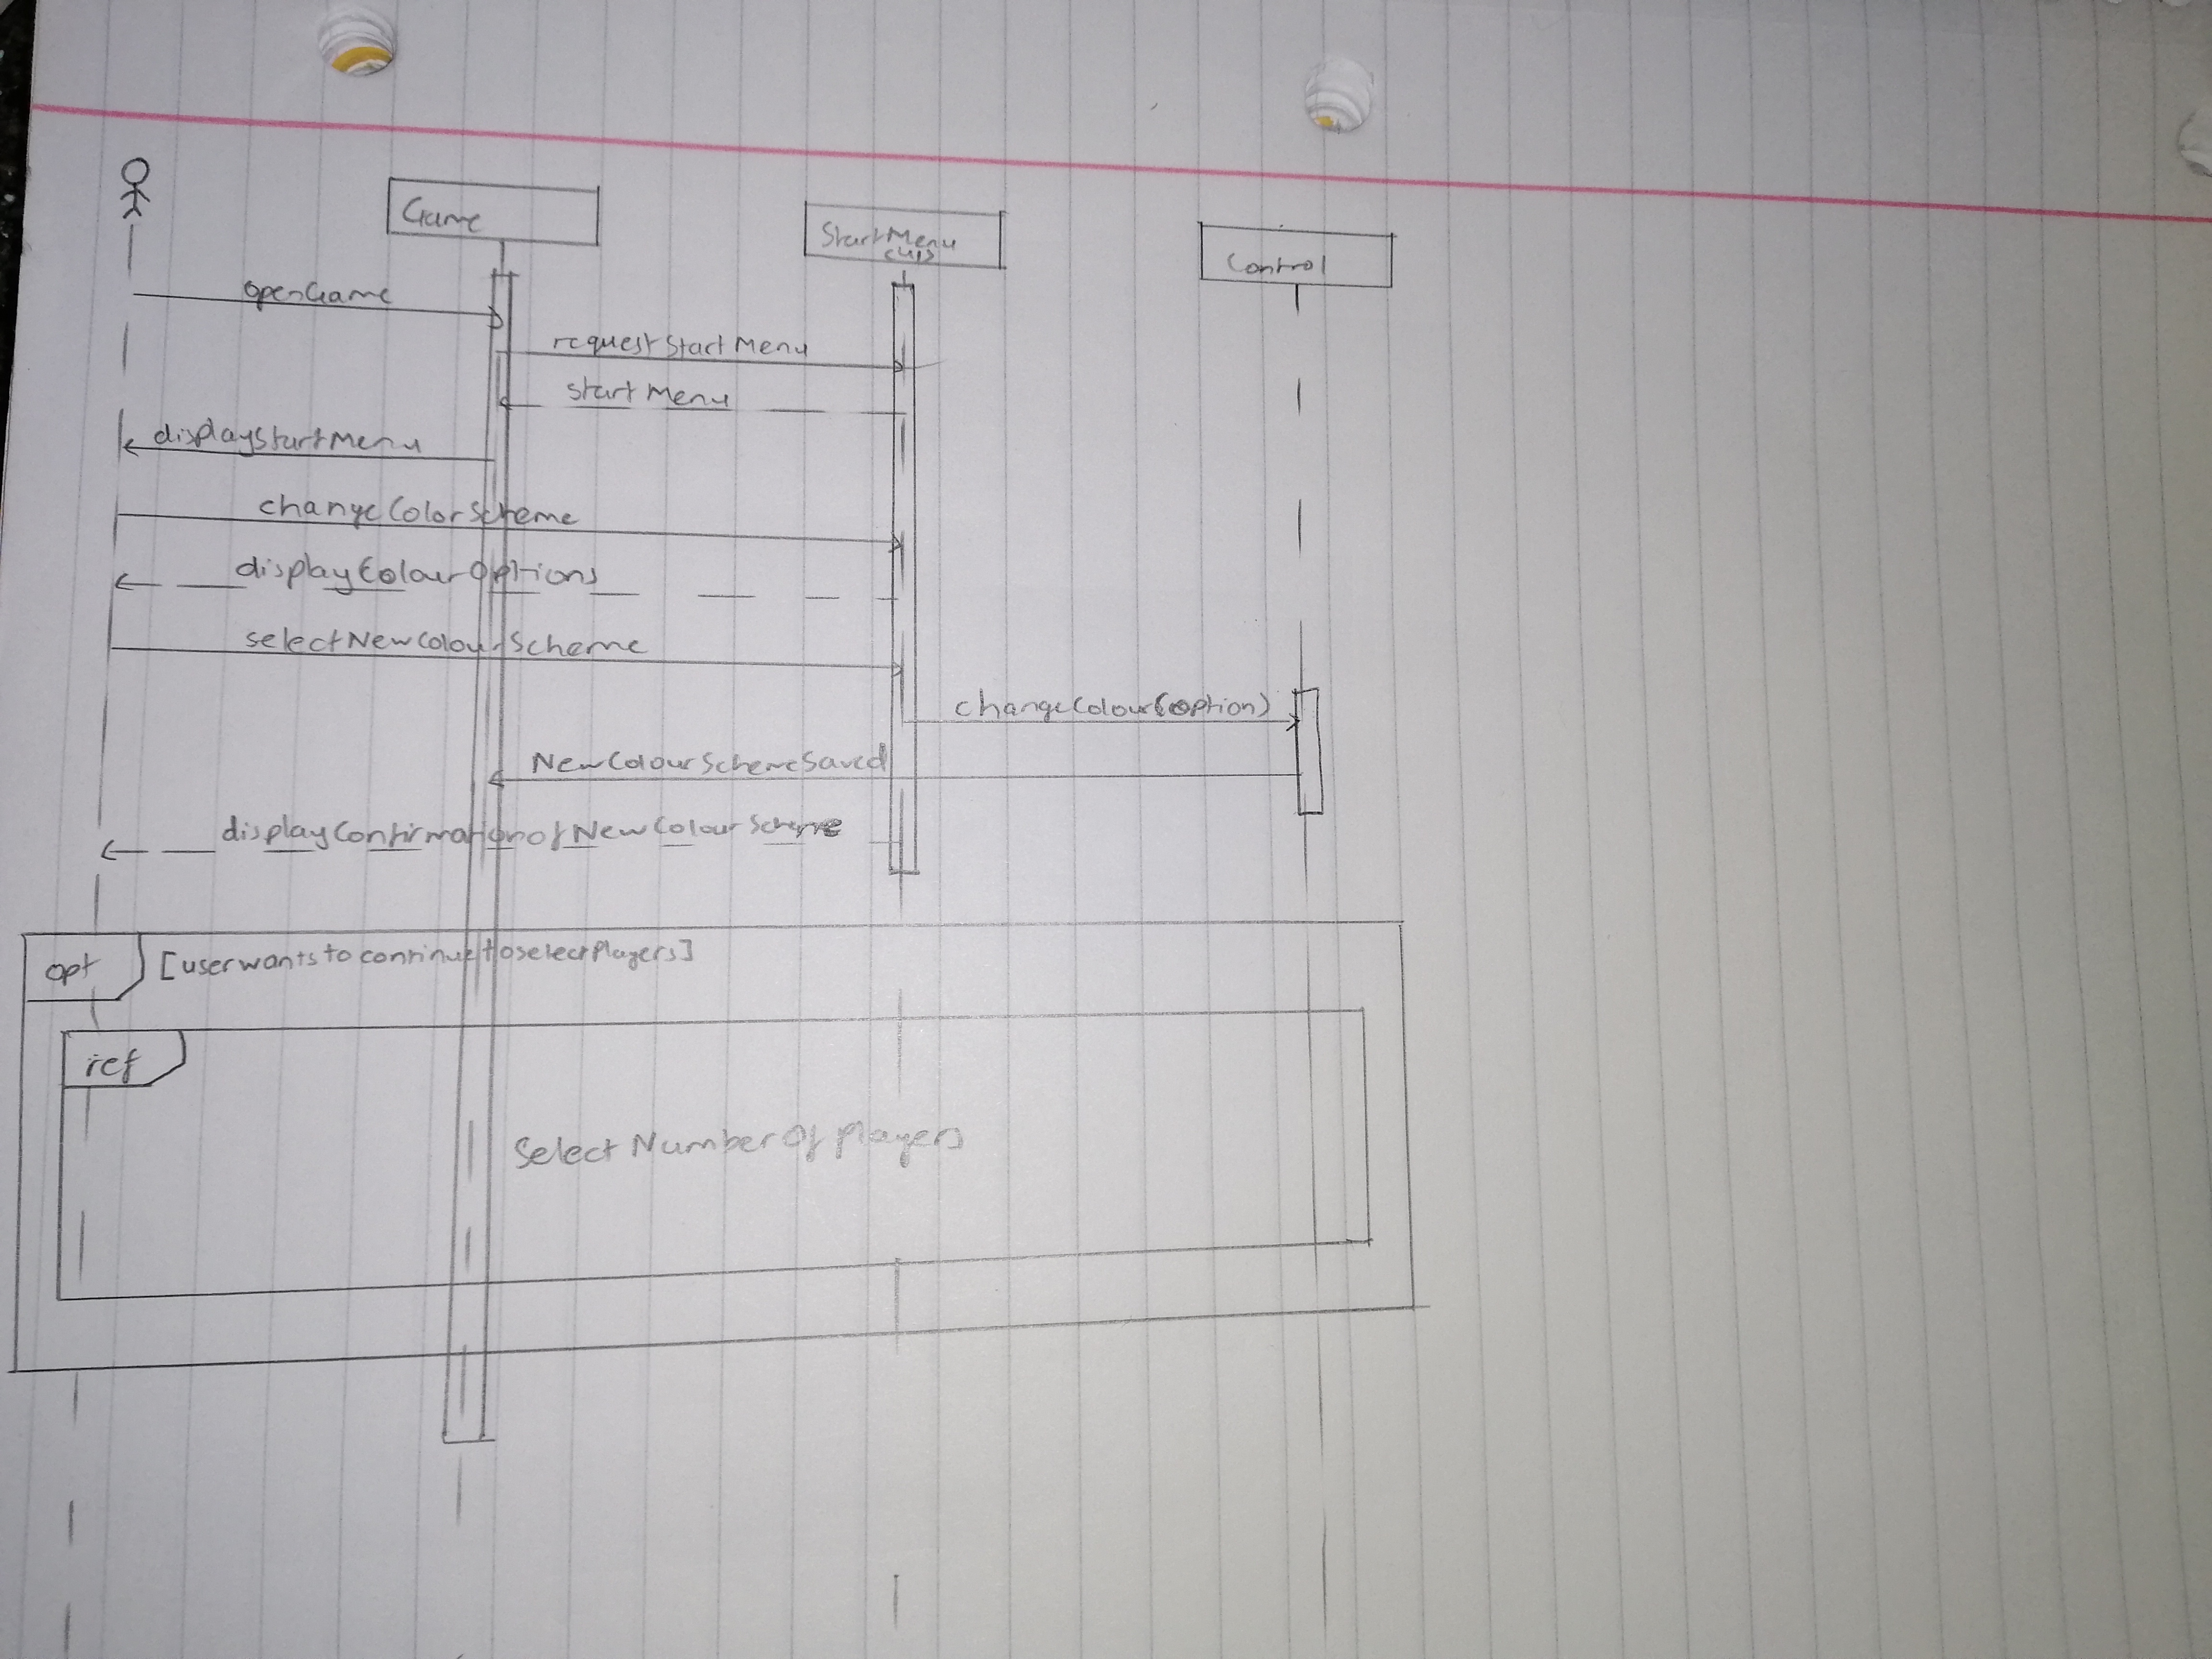 Game
StartMenu
Control
openGame
requestStartMenu
startMenu
displayStartMenu
changeColorScheme
displayColourOptions
selectNewColourScheme
changeColour(option)
NewColourSchemeSaved
displayConfirmationofNewColourScheme
opt
[user wants to continue to select Players]
ref
Select Number Of players